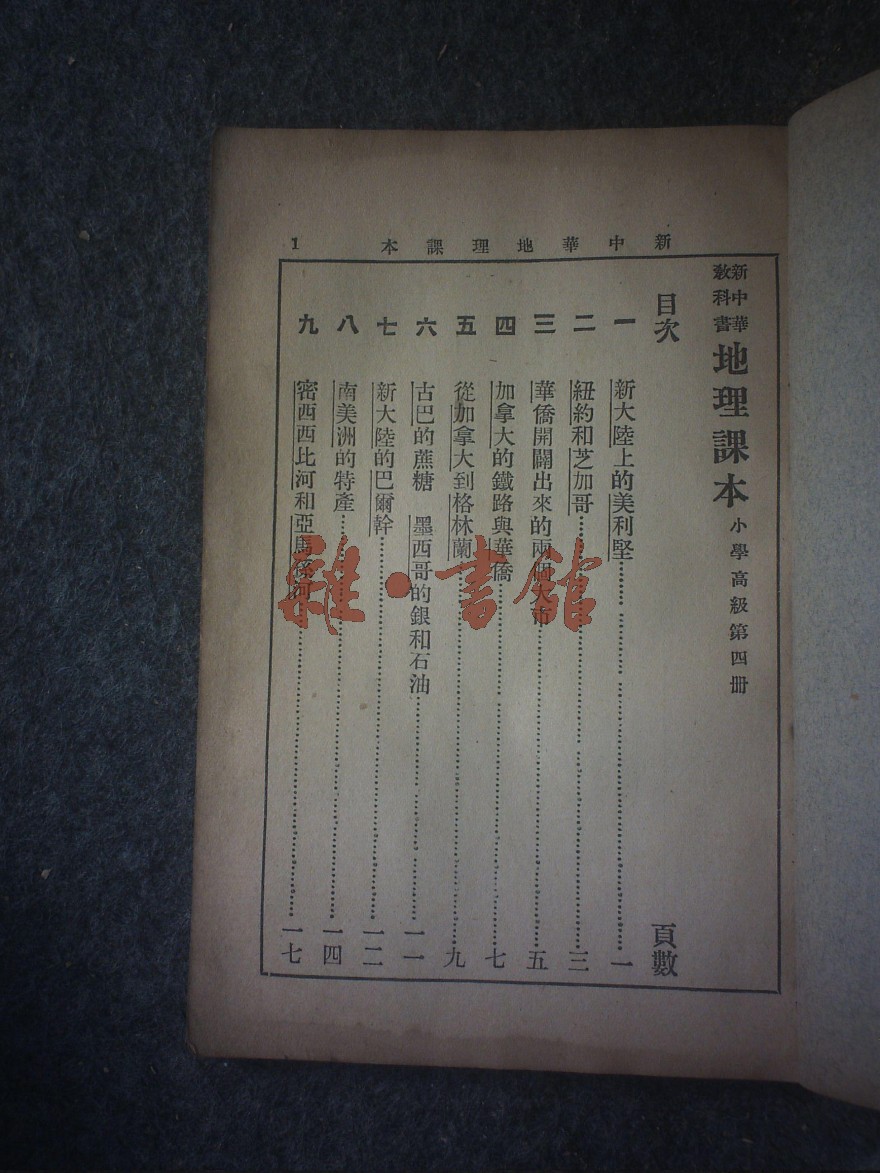 新中華地理課本
1
新中華
教科書
地理課本 小學高級第四册
目次 頁數
一 新大陸上的美利堅 一
二 紐約和芝加哥 三
三 華僑開闢出來的兩個大市 五
四 加拿大的鐵路與華僑 七
五 從加拿大到格林蘭 九
六 古巴的蔗糖 墨西哥的銀和石油 一一
七 新大陸的巴爾幹 一二
八 南美洲的特產 一四
九 密西西比河和亞馬孫河 一七
雜·書館